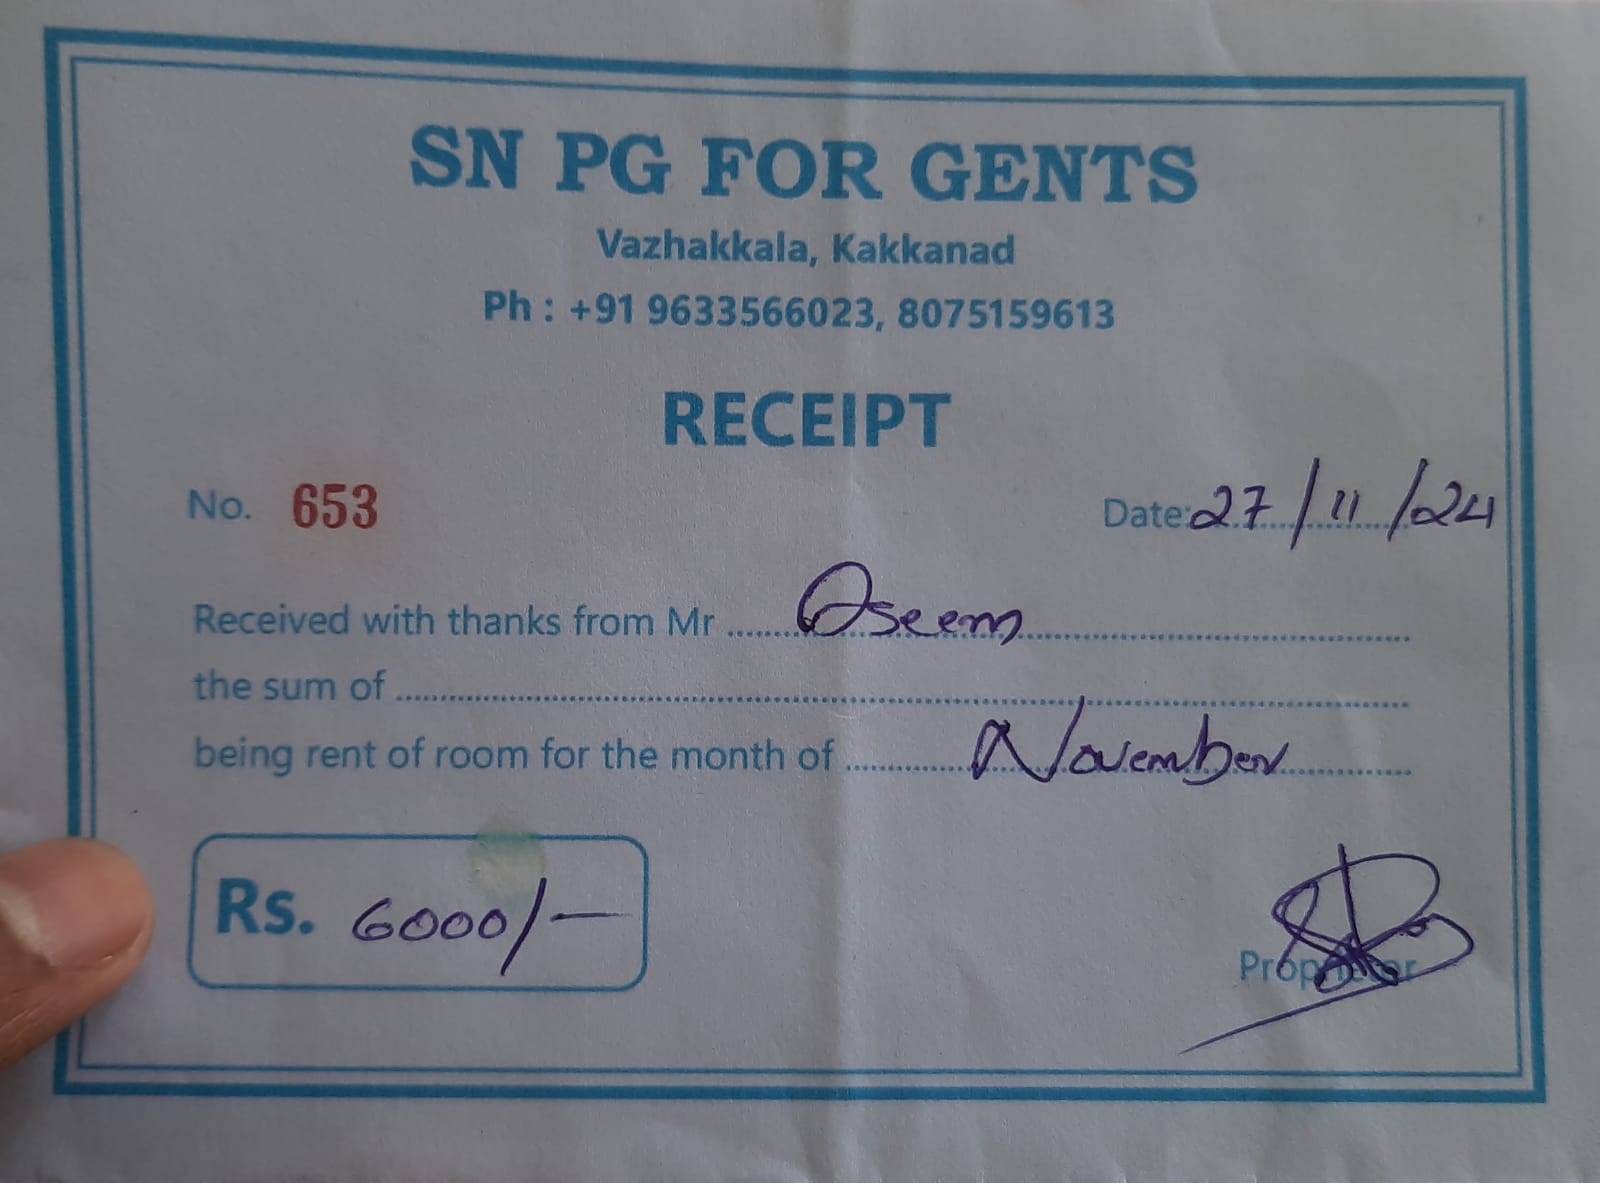 SN PG FOR GENTS
Vazhakkala, Kakkanad
Ph : +91 9633566023, 8075159613
RECEIPT
No. 653 Date: 27/11/24
Received with thanks from Mr Oseem
the sum of
being rent of room for the month of November
Rs. 6000/-
Proprietor